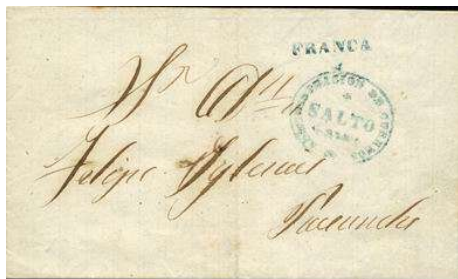 FRANCA
ADMINISTRACION DE CORREOS
SALTO
Sr Dn
Felipe Yglesias